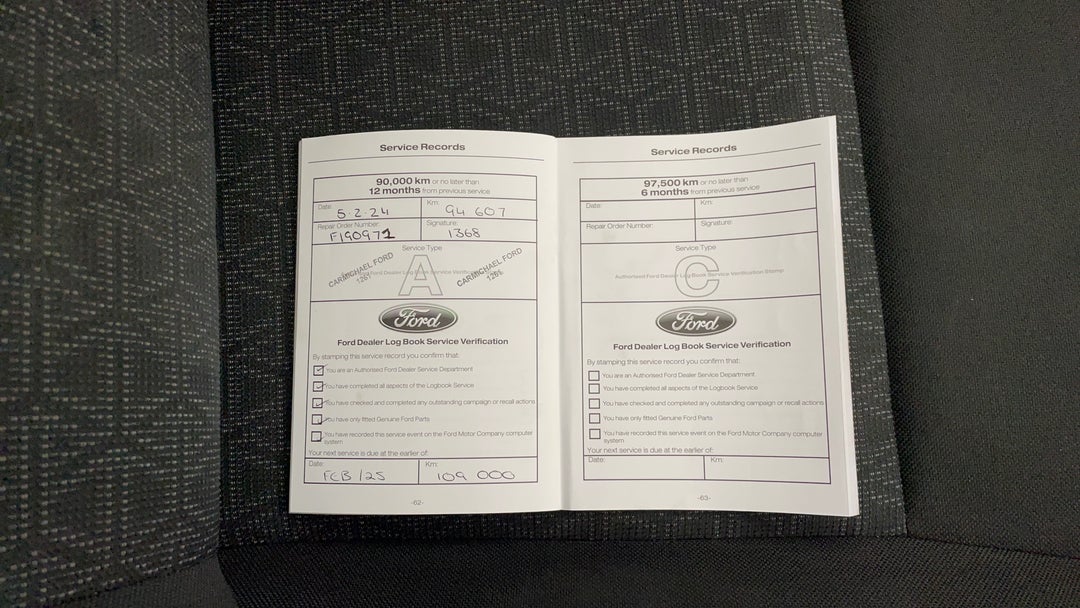 Service Records
90,000 km or no later than
12 months from previous service
Date: Km:
5.2.24 94 607
Repair Order Number: Signature:
F190971 1368
Service Type
A
Authorised Ford Dealer Log Book Service Verification Stamp
CARMICHAEL FORD
CARMICHAEL FORD
Ford
Ford Dealer Log Book Service Verification
By stamping this service record you confirm that:
You are an Authorised Ford Dealer Service Department
You have completed all aspects of the Logbook Service
You have checked and completed any outstanding campaign or recall actions
You have only fitted Genuine Ford Parts
You have recorded this service event on the Ford Motor Company computer
system
Your next service is due at the earlier of:
Date: Km:
FEB /25 109 000
-62-
Service Records
97,500 km or no later than
6 months from previous service
Date: Km:
Repair Order Number: Signature:
Service Type
C
Authorised Ford Dealer Log Book Service Verification Stamp
Ford
Ford Dealer Log Book Service Verification
By stamping this service record you confirm that:
You are an Authorised Ford Dealer Service Department
You have completed all aspects of the Logbook Service
You have checked and completed any outstanding campaign or recall actions
You have only fitted Genuine Ford Parts
You have recorded this service event on the Ford Motor Company computer
system
Your next service is due at the earlier of:
Date: Km:
-63-